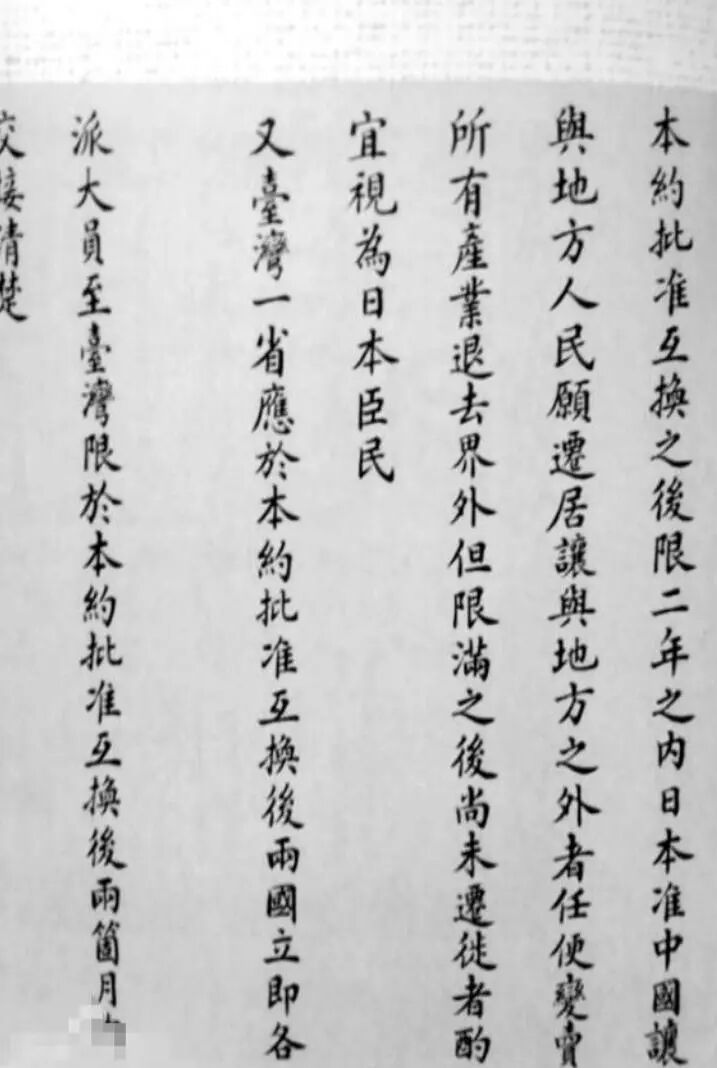 本約批准互換之後限二年之內日本准中國讓
與地方人民願遷居讓與地方之外者任便變賣
所有產業退去界外但限滿之後尚未遷徙者酌
宜視為日本臣民
又臺灣一省應於本約批准互換後兩國立即各
派大員至臺灣限於本約批准互換後兩箇月
交接清楚